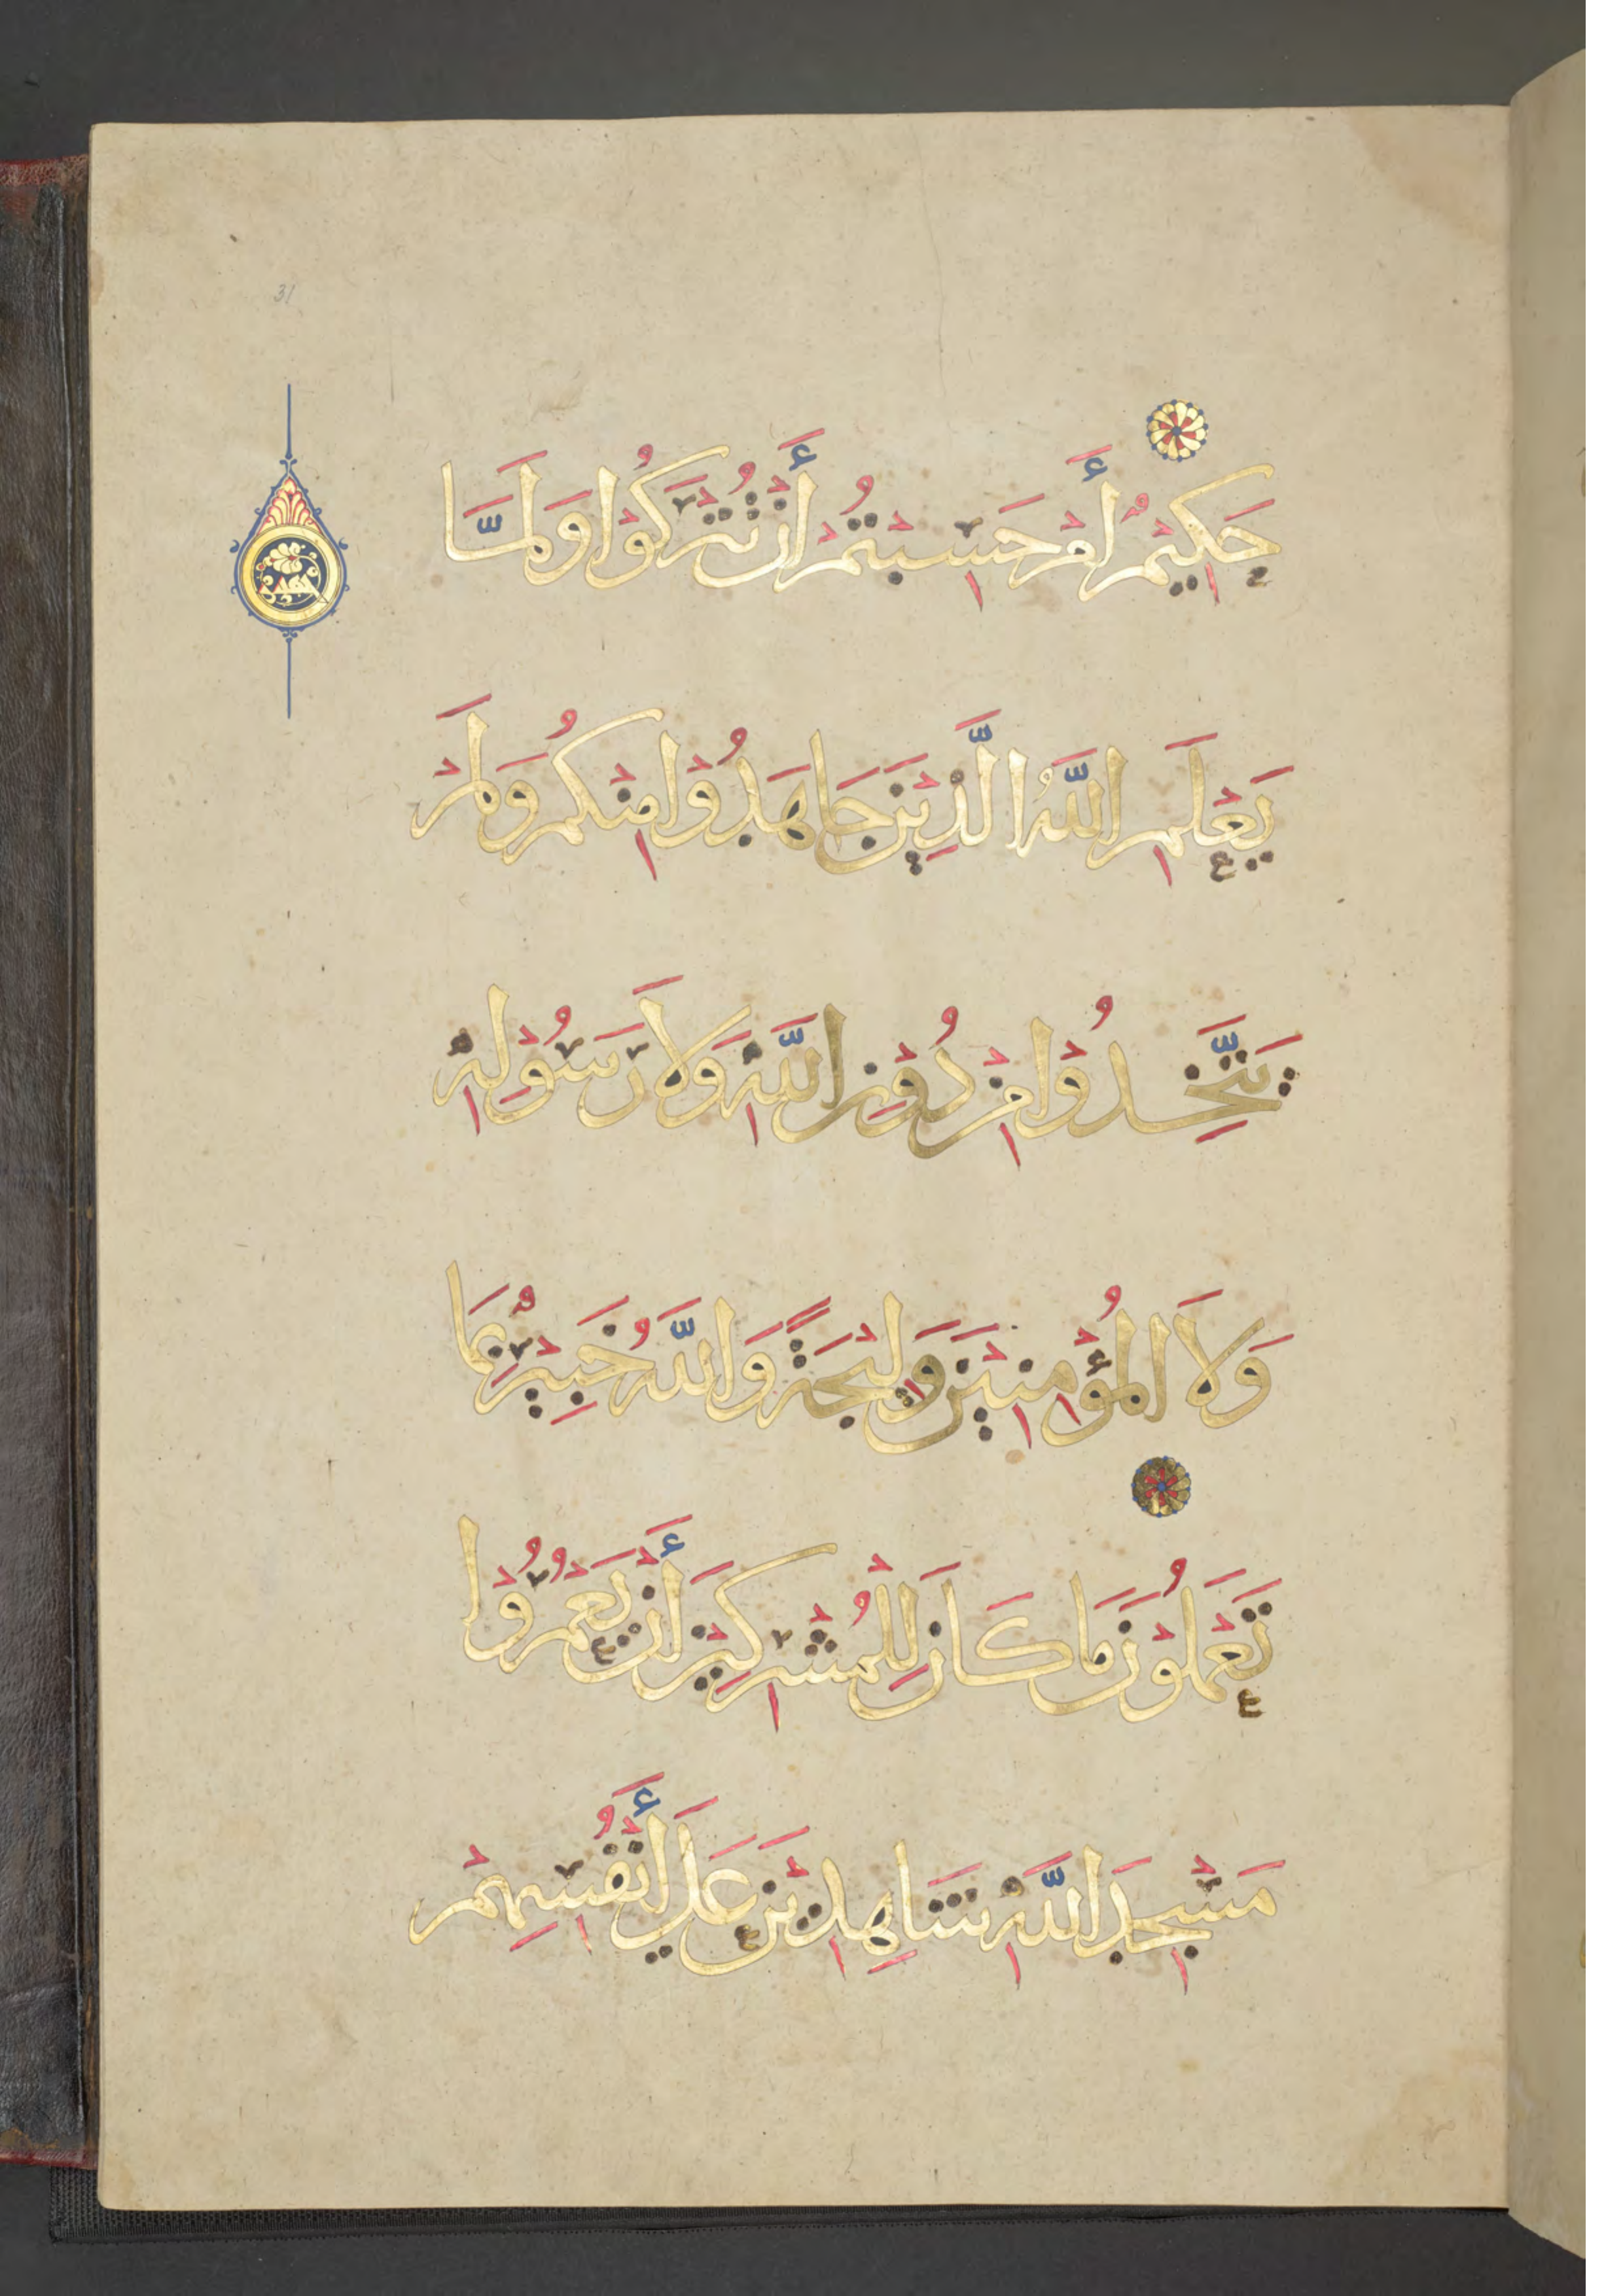 31
حَكِيْمٌ أَمْ حَسِبْتُمْ أَنْ تُتْرَكُوْا وَلَمَّا
يَعْلَمِ اللَّهُ الَّذِيْنَ جَاهَدُوْا مِنْكُمْ وَلَمْ
يَتَّخِذُوْا مِنْ دُوْنِ اللَّهِ وَلَا رَسُوْلِهِ
وَلَا الْمُؤْمِنِيْنَ وَلِيْجَةً وَاللَّهُ خَبِيْرٌ بِمَا
تَعْمَلُوْنَ مَا كَانَ لِلْمُشْرِكِيْنَ أَنْ يَعْمُرُوْا
مَسْجِدَ اللَّهِ شَاهِدِيْنَ عَلَى أَنْفُسِهِمْ